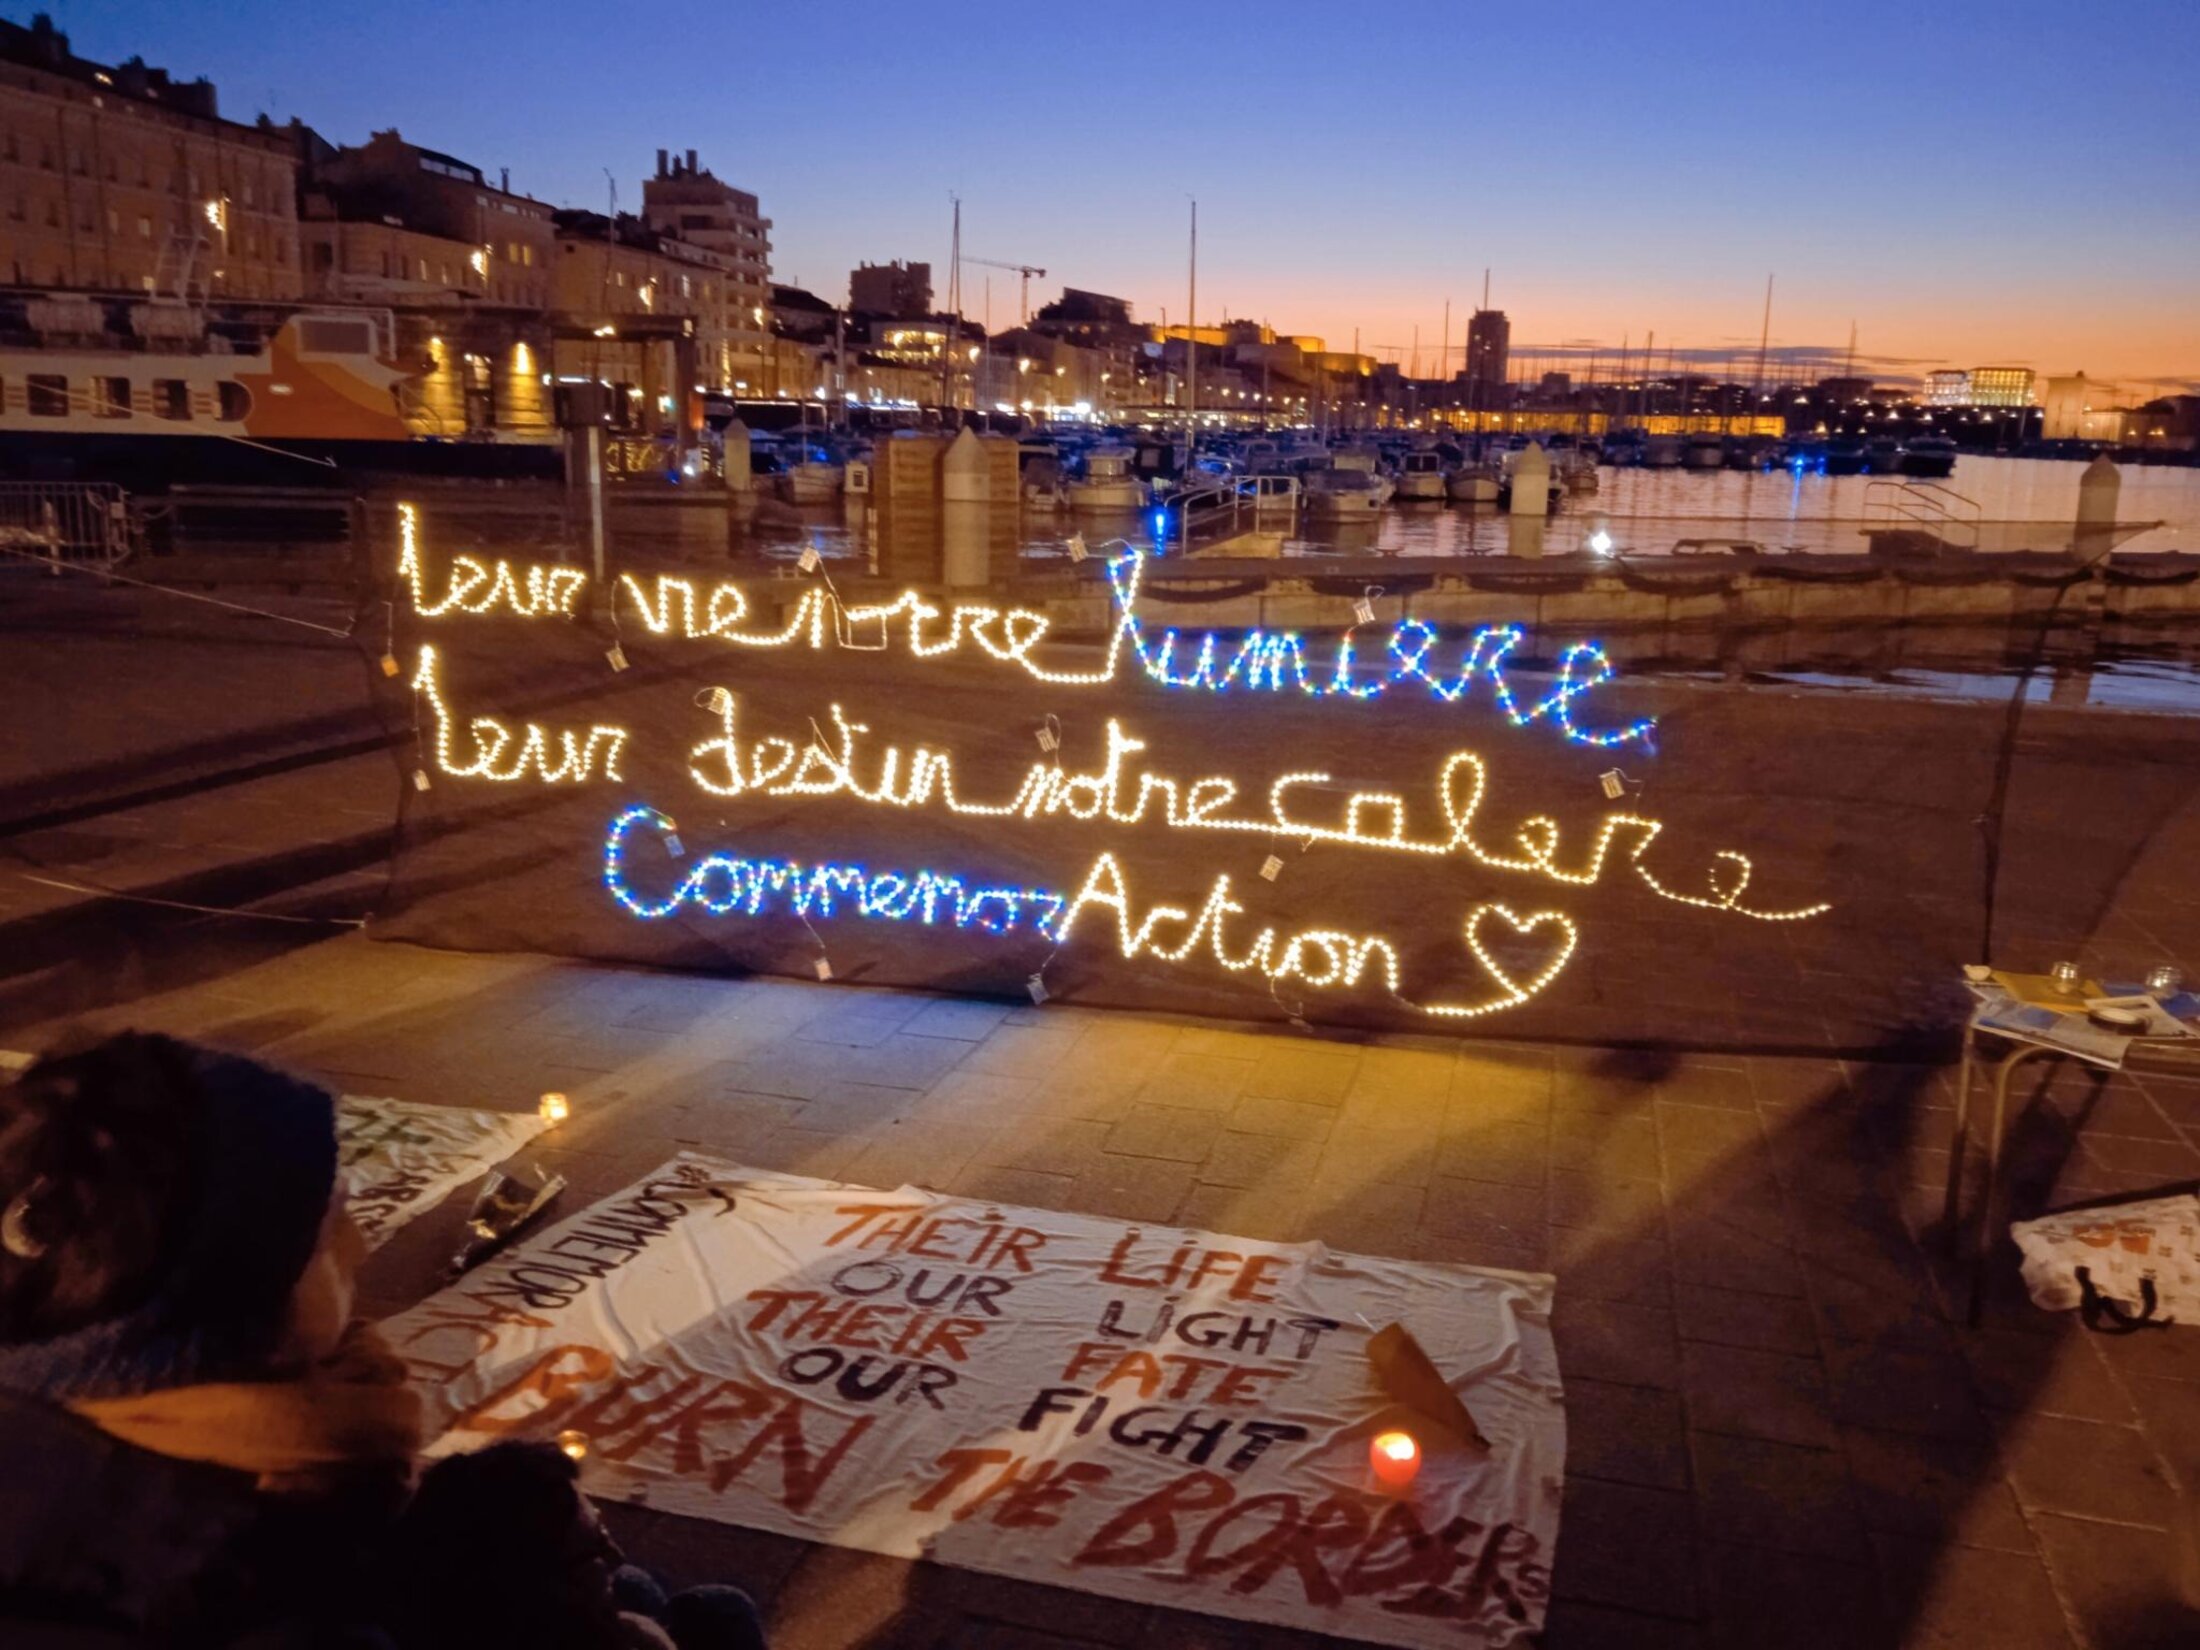 leur vie notre lumiere
leur destin notre colere
CommemorAction
#COMMEMOR
ACTI
THEIR LIFE
OUR LIGHT
THEIR FATE
OUR FIGHT
BURN THE BORDERS